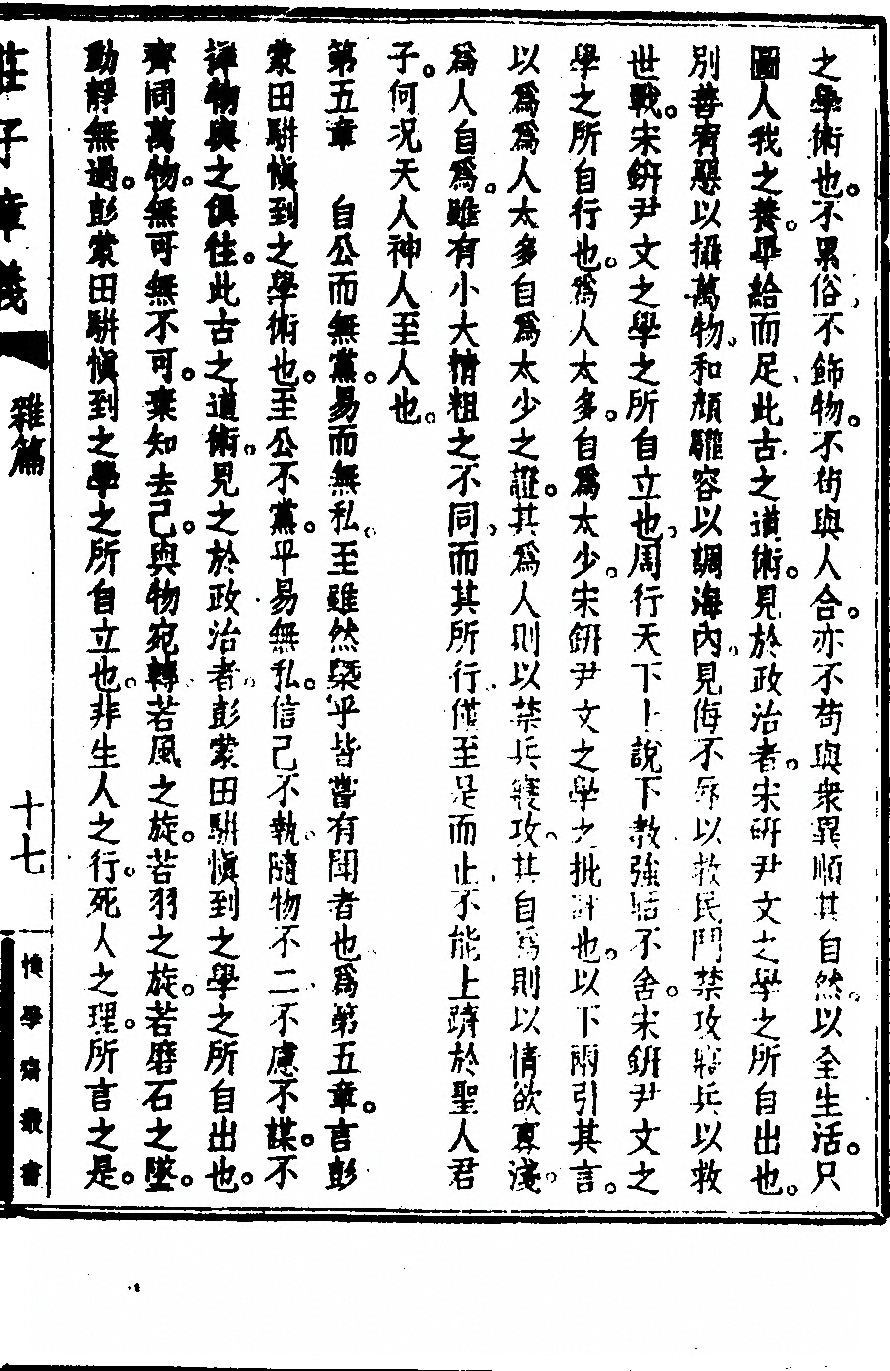 之學術也。不累俗、不飾物。不茍與人合。亦不茍與衆異順其自然。以全生活。只
圖人我之養。畢給而足、此古之道術。見於政治者。宋硏尹文之學之所自出也。
別善宥懸以攝萬物。和顏驩容以調海內。見侮不辱以救民鬥禁攻寢兵以救
世戰。宋銒尹文之學之所自立也、周行天下上說下教強聒不舍。宋銒尹文之
學之所自行也。爲人太多。自爲太少。宋銒尹文之學之批評也。以下兩引其言。
以爲爲人太多自爲太少之證。其爲人則以禁兵寢攻。其自爲則以情欲寡淺。
爲人自爲。雖有小大精粗之不同、而其所行、僅至是而止、不能上躋於聖人君
子。何況天人神人至人也。
第五章　自公而無黨。易而無私。至雖然槩乎皆嘗有聞者也爲第五章。言彭
蒙田駢愼到之學術也。至公不黨。平易無私。信己不執。隨物不二不慮不謀。不
譯物與之俱往。此古之道術。見之於政治者。彭蒙田駢愼到之學之所自出也。
齊同萬物。無可無不可。棄知去己。與物宛轉、若風之旋。若羽之旋。若磨石之墜。
動靜無過。彭蒙田駢愼到之學之所自立也。非生人之行。死人之理。所言之是。
莊子章義
雜篇
十七
學齋叢書